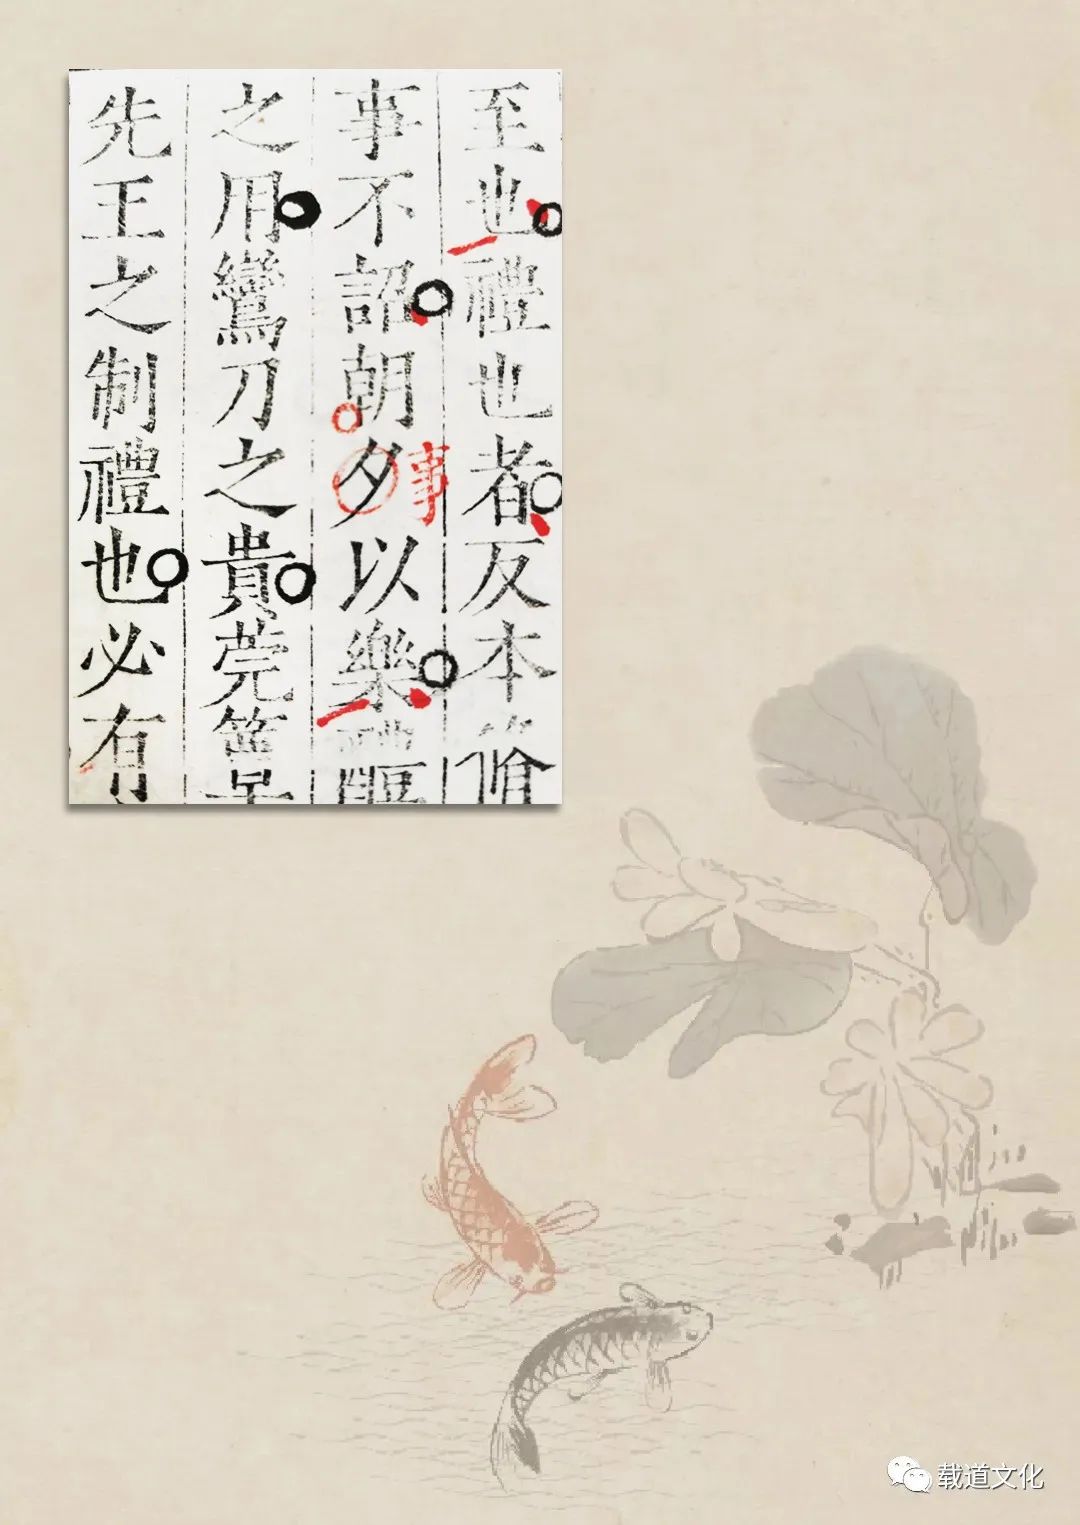 至也禮也者反本脩
事不詔朝夕以樂醴
事
之用鸞刀之貴莞簟
先王之制禮也必有
载道文化